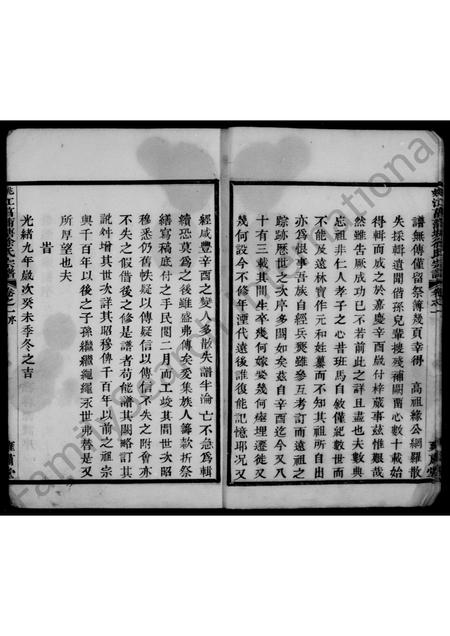 譜無傳僅留祭簿幾頁幸得　高祖緣公網羅散
失採輯遺聞偕孫兒輩搜殘補闕苦心數十載始
得輯而成之於嘉慶辛酉歲付梓蕆事茲惟艱哉
然雖告厥成功已不若前此之詳且盡也夫數典
忘祖非仁人孝子之心昔班馬自敘僅紀數世而
不能及遠林寶作元和姓纂而不知其祖所自出
亦為恨事吾族自經兵燹雖參互考訂而遠祖之
踪跡歷世之次序多闕如矣茲自辛酉迄今又八
十有三載其間生卒幾何嫁娶幾何瘞埋遷徙又
幾何設今不修年湮代遠後誰復能記憶耶况又
經咸豐辛酉之變人多散失譜牛淪亡不急為輯
續恐莫為之後雖盛弗傳矣爰集族人籌款折祭
繕寫稿底付之手民閱二月而工竣其間世次昭
穆悉仍舊帙疑以傳疑信以傳信不失之附會亦
不失之假借後之修是譜者苟能譜牒闕略訂其
訛舛增其世次詳其昭穆傳千百年以前之祖宗
與千百年以後之子孫繼繼繩繩永世弗替是又
所厚望也夫
旹
光緒九年歲次癸未季冬之吉